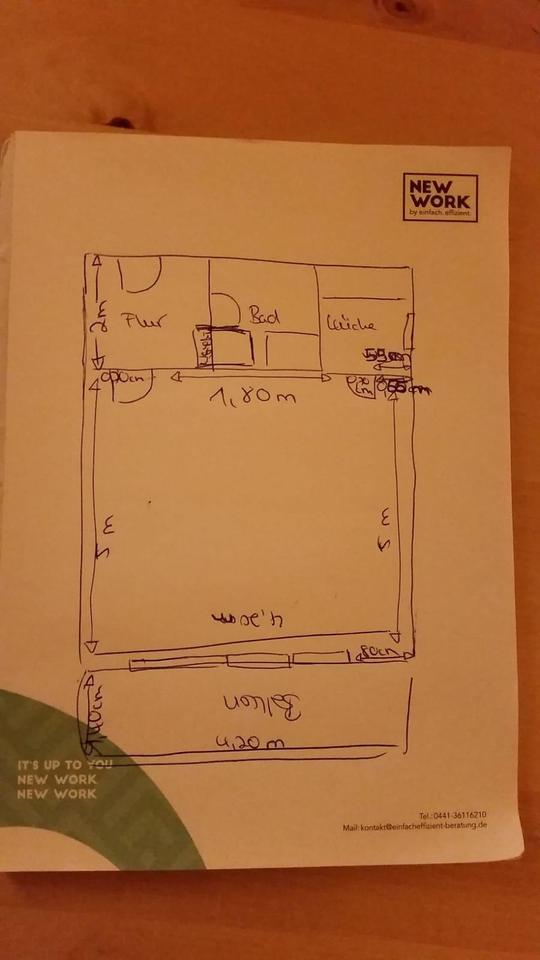 NEW
WORK
by einfach. effizient.
2m
Flur
Bad
Küche
55cm
0,90cm
1,80m
5m
5m
4,20m
80cm
Balkon
4,20m
IT'S UP TO YOU
NEW WORK
NEW WORK
Tel.: 0441-36116210
Mail: kontakt@einfacheffizient-beratung.de